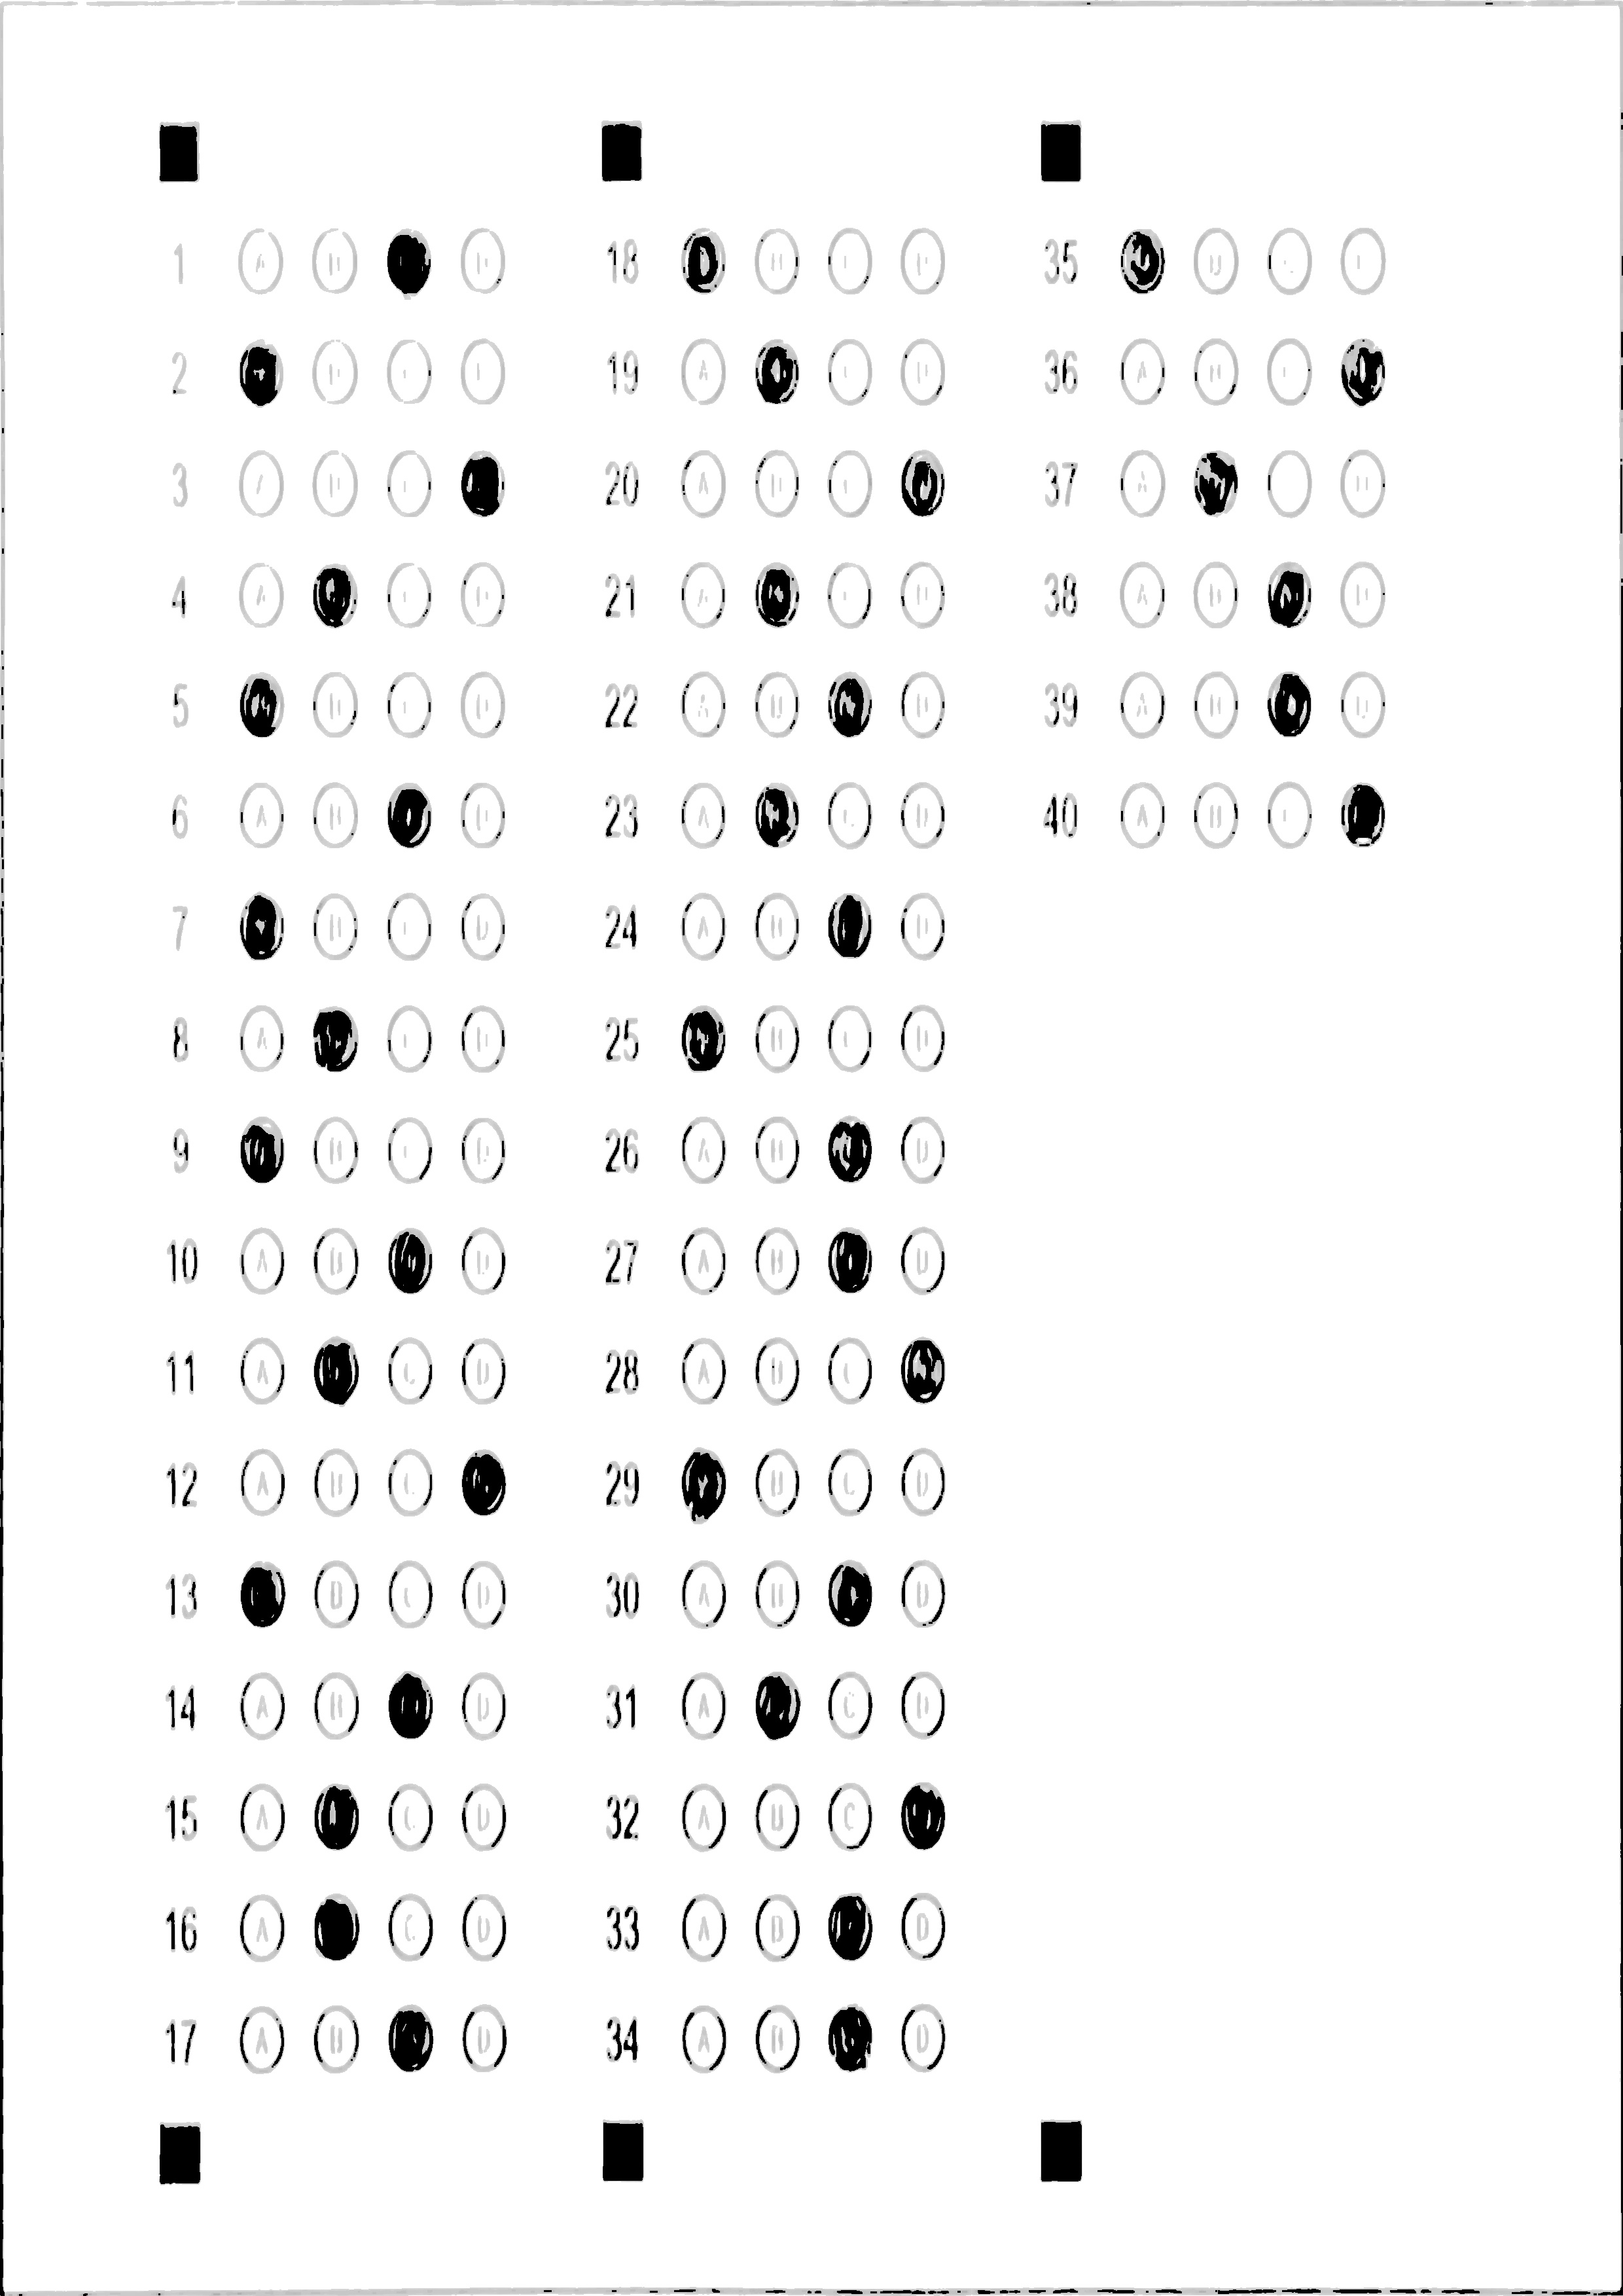 1 A B D
2 B C D
3 A B C
4 A C D
5 B C D
6 A B D
7 B C D
8 A C D
9 B C D
10 A B D
11 A C D
12 A B C
13 B C D
14 A B D
15 A C D
16 A C D
17 A B D
18 B C D
19 A C D
20 A B C
21 A C D
22 A B D
23 A C D
24 A B D
25 B C D
26 A B D
27 A B D
28 A B C
29 B C D
30 A B D
31 A C D
32 A B C
33 A B D
34 A B D
35 B C D
36 A B C
37 A C D
38 A B D
39 A B D
40 A B C